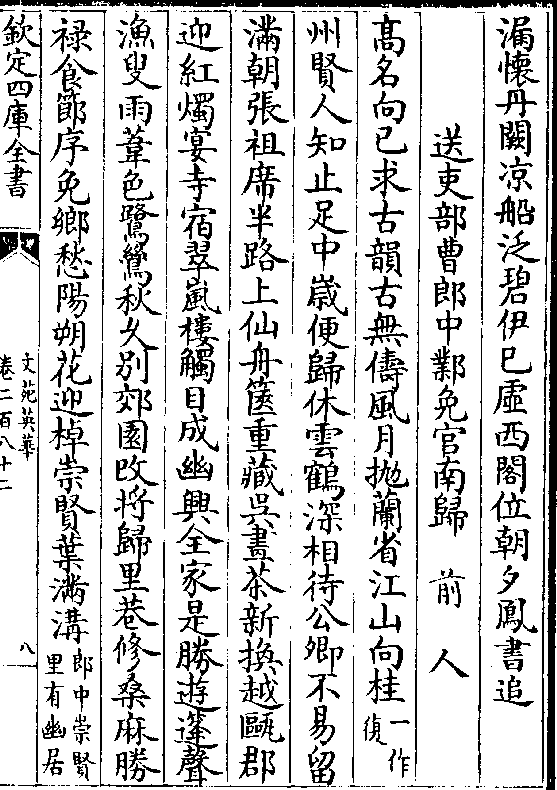 漏懷丹闕凉船泛碧伊已虛西閣位朝夕鳳書追
送吏部曹郎中鄴免官南歸 前人
髙名向已求古韻古無儔風月抛蘭省江山向桂一作復
州賢人知止足中嵗便歸休雲鶴深相待公卿不易留
滿朝張祖席半路上仙舟篋重藏吳畫茶新換越甌郡
迎紅燭宴寺宿翠嵐樓觸目成幽興全家是勝遊篷聲
漁叟雨葦色鷺鷥秋久別郊園改將歸里巷修桑麻勝
禄食節序免鄉愁陽朔花迎棹崇賢葉滿溝郎中崇賢里有幽居
欽定四庫全書
文苑英華
卷二百八十二
八